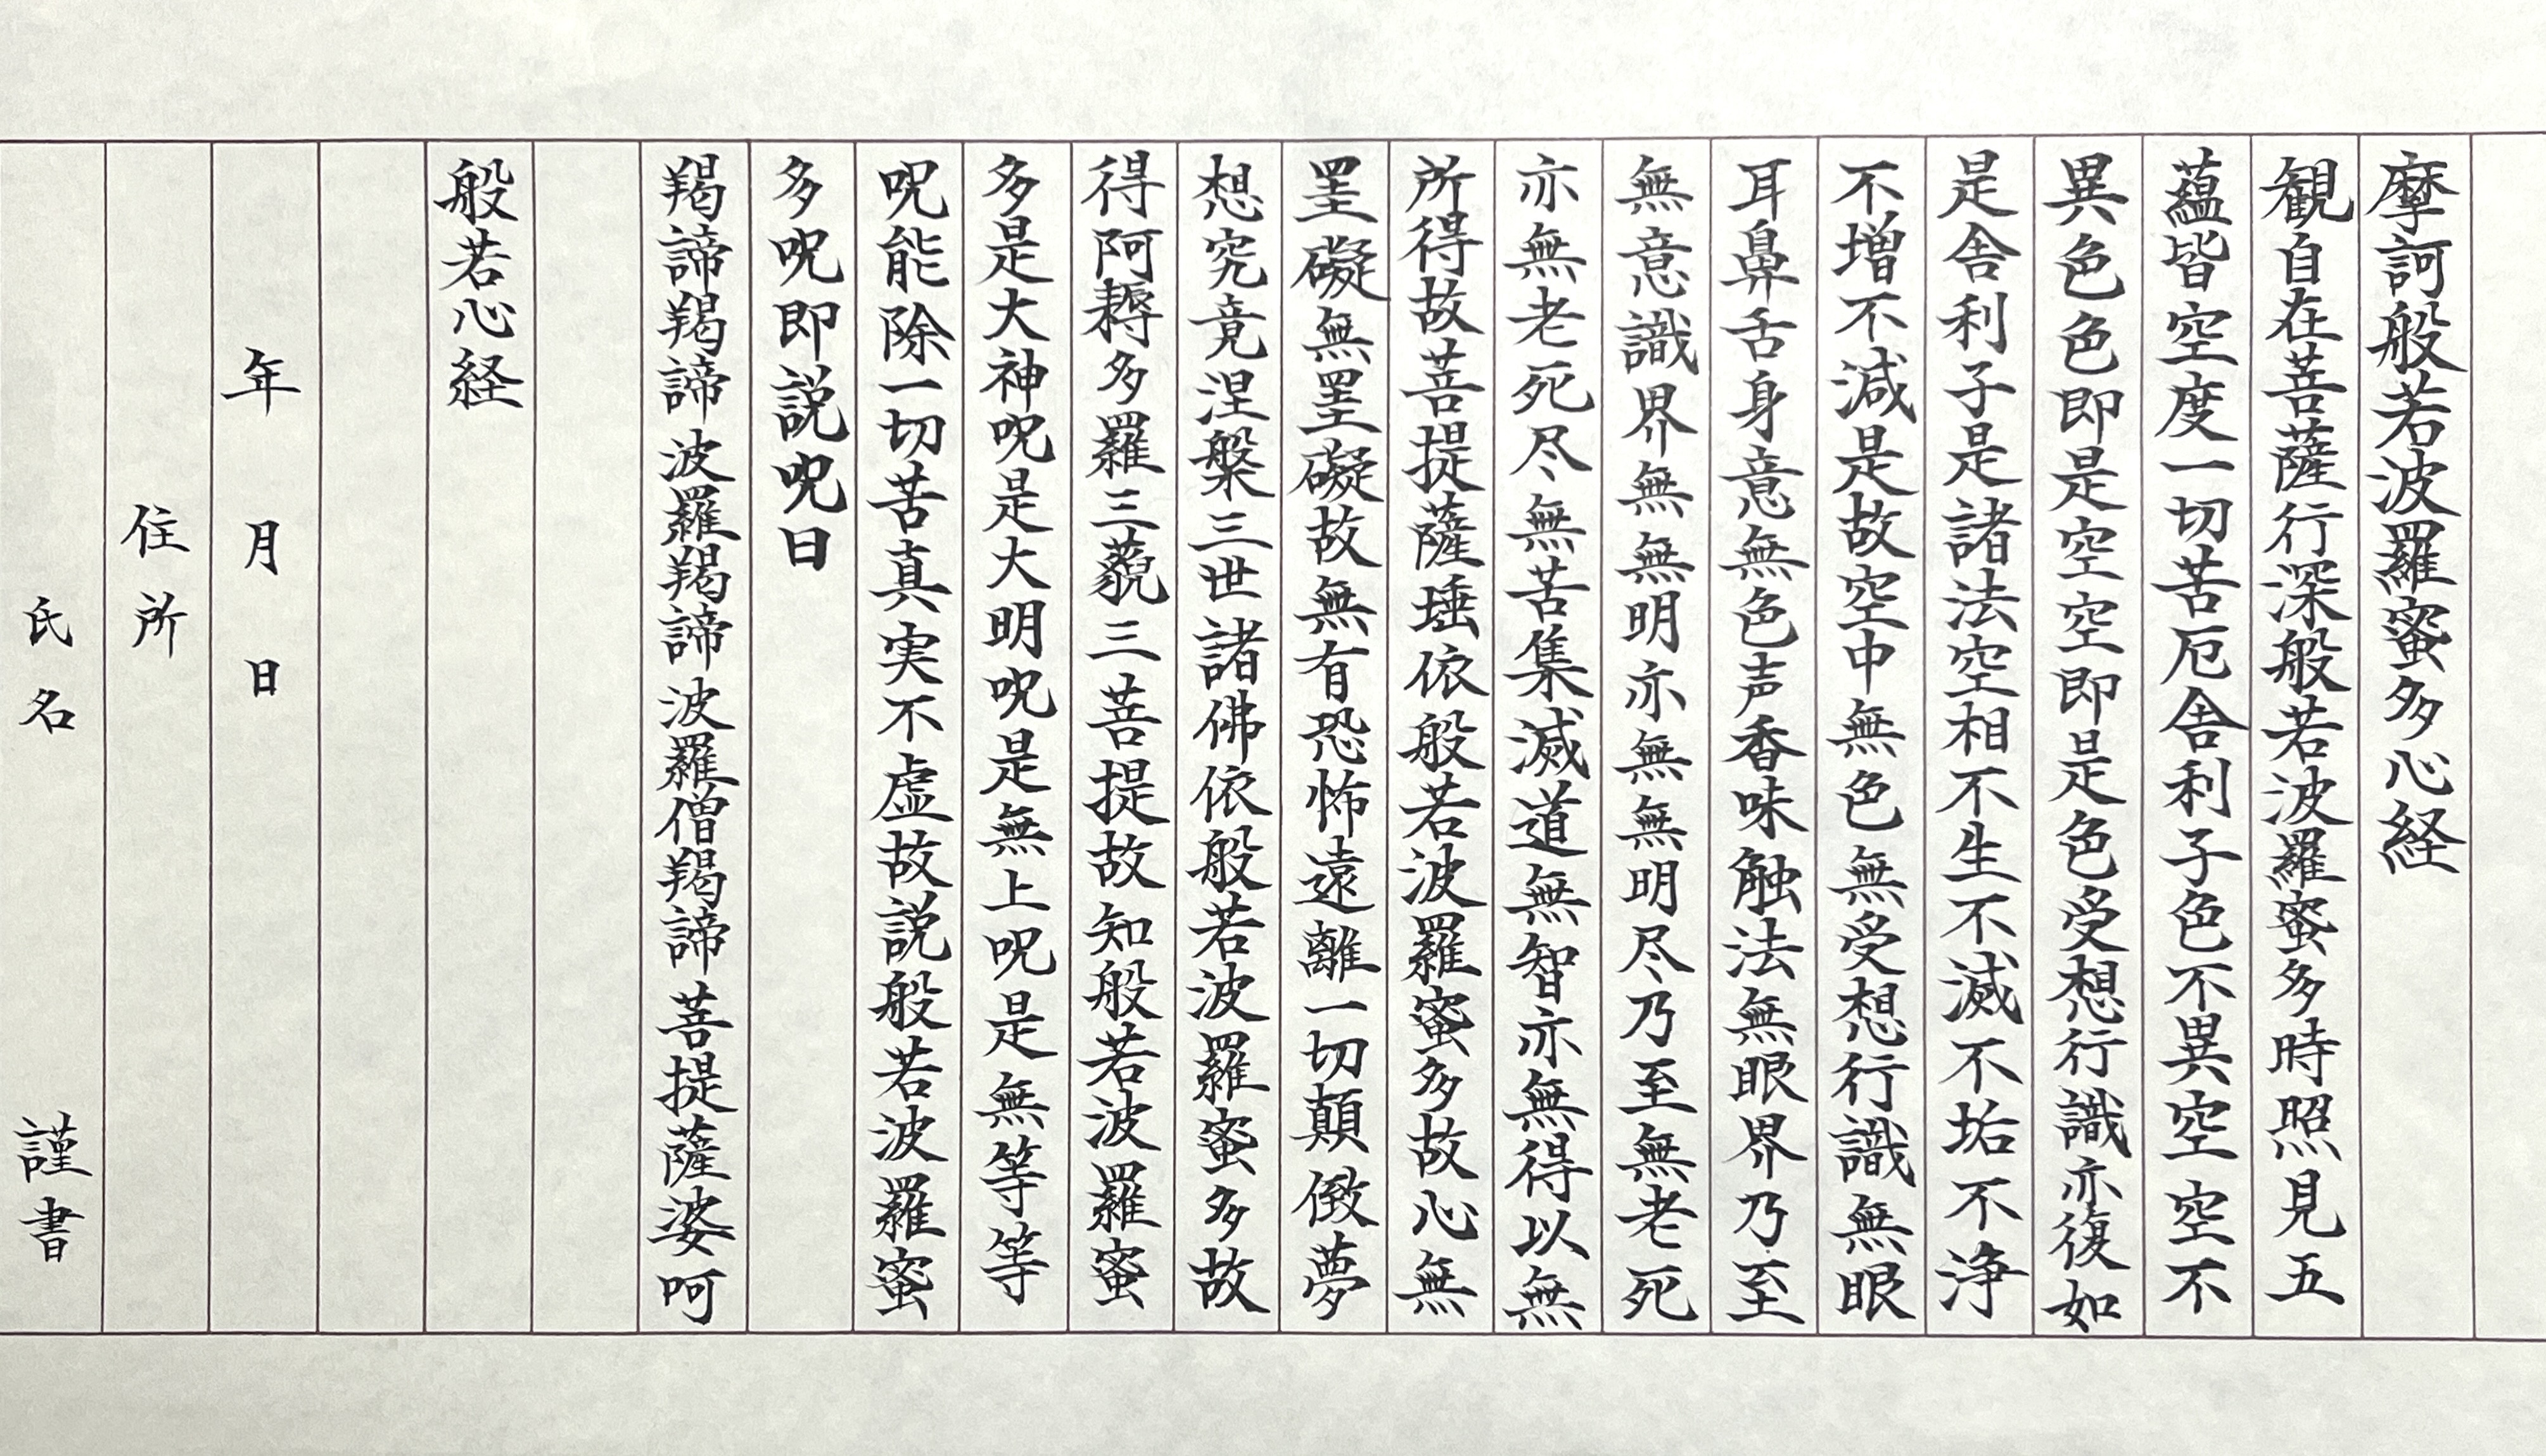 摩訶般若波羅蜜多心経
観自在菩薩行深般若波羅蜜多時照見五
蘊皆空度一切苦厄舎利子色不異空空不
異色色即是空空即是色受想行識亦復如
是舎利子是諸法空相不生不滅不垢不浄
不増不減是故空中無色無受想行識無眼
耳鼻舌身意無色声香味触法無眼界乃至
無意識界無無明亦無無明尽乃至無老死
亦無老死尽無苦集滅道無智亦無得以無
所得故菩提薩埵依般若波羅蜜多故心無
罣礙無罣礙故無有恐怖遠離一切顛倒夢
想究竟涅槃三世諸佛依般若波羅蜜多故
得阿耨多羅三藐三菩提故知般若波羅蜜
多是大神呪是大明呪是無上呪是無等等
呪能除一切苦真実不虚故説般若波羅蜜
多呪即説呪曰
羯諦羯諦波羅羯諦波羅僧羯諦菩提薩婆呵
般若心経
年月日
住所
氏名 謹書